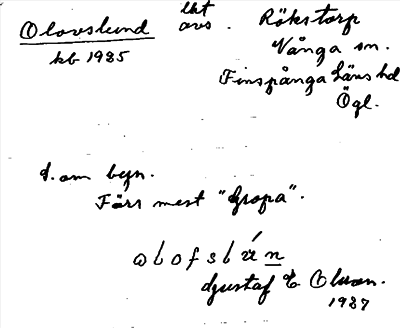 Olovslund lht avs. Rökstorp
kb 1985 Vånga sn.
Finspånga läns hd
Ögl.
d. om begn.
Förr mest "Gropa".
Gustaf E Olsson.
1987